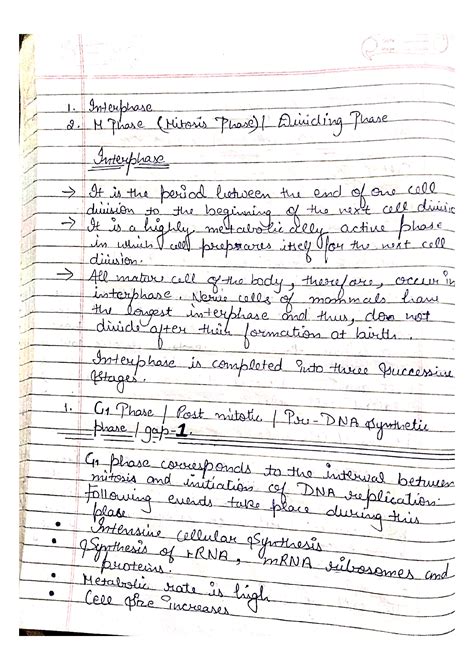 1. Interphase
2. M Phase (Mitosis Phase) / Dividing Phase
Interphase
→ It is the period between the end of one cell
division to the beginning of the next cell divisio
→ It is a highly metabolically active phase
in which cell preprares itself for the next cell
division.
→ All mature cell of the body, therefore, occur in
interphase. Nerve cells of mammals have
the longest interphase and thus, does not
divide after their formation at birth.
Interphase is completed into three successive
stages.
1. G1 Phase / Post mitotic / Pre-DNA Synthetic
phase / gap-1
G1 phase corresponds to the interval between
mitosis and initiation of DNA replication.
Following events take place during this
• Intensive cellular Synthesis
• Synthesis of rRNA, mRNA ribosomes and
proteins.
• Metabolic rate is high
• Cell Size increases